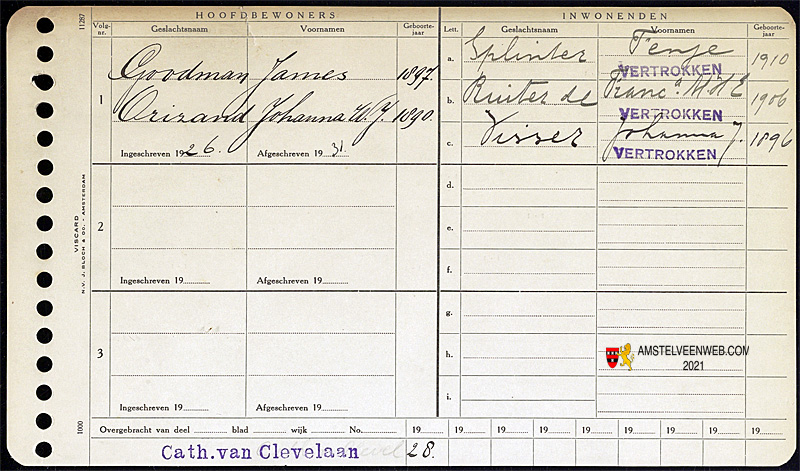 HOOFDBEWONERS
INWONENDEN
11287
Volg-nr.
Geslachtsnaam
Voornamen
Geboorte-jaar
Lett.
Geslachtsnaam
Voornamen
Geboorte-jaar
1
Goodman James 1897.
Johanna W. J. 1890.
Ingeschreven 1926.
Afgeschreven 1931.
a. Splinter 1910
VERTROKKEN
b. Ruiter de 1906
VERTROKKEN
c. Visser Johanna J. 1896
VERTROKKEN
2
Ingeschreven 19
Afgeschreven 19
d.
e.
f.
3
Ingeschreven 19
Afgeschreven 19
g.
h.
i.
AMSTELVEENWEB.COM
2021
VISCARD
N.V. J. BLOCH & Co. - AMSTERDAM
1000
Overgebracht van deel blad wijk No. 19 19 19 19 19 19 19 19 19
Cath.van Clevelaan 28.